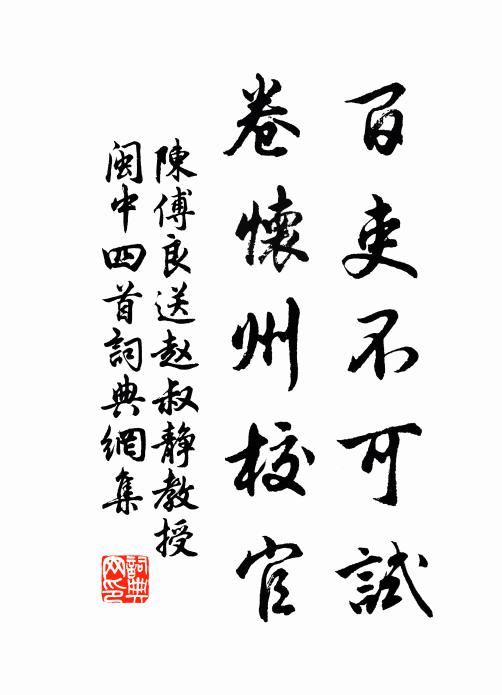 百吏不可試
卷懷州校官
陳傅良送赵叔靜教授
闽中四首詞典網集
詞典網印